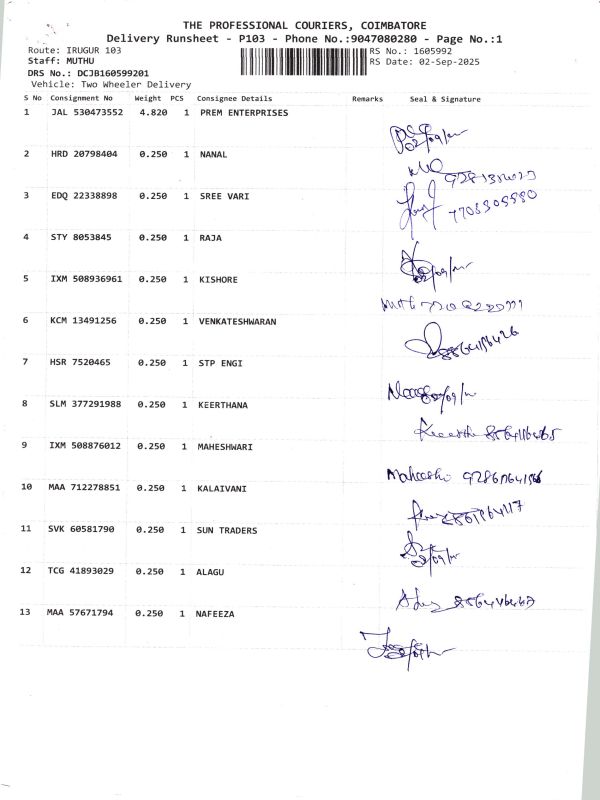 THE PROFESSIONAL COURIERS, COIMBATORE
Delivery Runsheet - P103 - Phone No.:9047080280 - Page No.:1
Route: IRUGUR 103
RS No.: 1605992
Staff: MUTHU
RS Date: 02-Sep-2025
DRS No.: DCJB160599201
Vehicle: Two Wheeler Delivery
S No Consignment No Weight PCS Consignee Details Remarks Seal & Signature
1 JAL 530473552 4.820 1 PREM ENTERPRISES
2 HRD 20798404 0.250 1 NANAL
3 EDQ 22338898 0.250 1 SREE VARI
7703305580
4 STY 8053845 0.250 1 RAJA
5 IXM 508936961 0.250 1 KISHORE
6 KCM 13491256 0.250 1 VENKATESHWARAN
7 HSR 7520465 0.250 1 STP ENGI
8 SLM 377291988 0.250 1 KEERTHANA
9 IXM 508876012 0.250 1 MAHESHWARI
10 MAA 712278851 0.250 1 KALAIVANI
11 SVK 60581790 0.250 1 SUN TRADERS
12 TCG 41893029 0.250 1 ALAGU
13 MAA 57671794 0.250 1 NAFEEZA